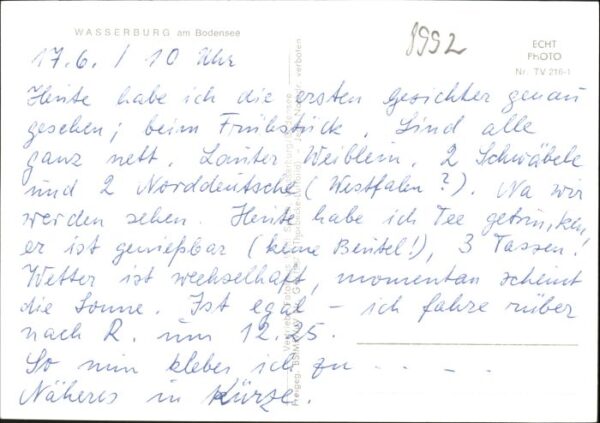 WASSERBURG am Bodensee
8992
ECHT
PHOTO
Nr. TV 216-1
17.6. / 10 Uhr
Heute habe ich die ersten Gesichter genau
gesehen; beim Frühstück. Sind alle
ganz nett. Lauter Weiblein. 2 Schwäbele
und 2 Norddeutsche (Westfalen ?). Na wir
werden sehen. Heute habe ich Tee getrunken,
er ist genießbar (keine Beutel!), 3 Tassen!
Wetter ist wechselhaft, momentan scheint
die Sonne. Ist egal – ich fahre rüber
nach R. um 12.25.
So nun klebe ich zu . . - - .
Näheres in Kürze.
verboten